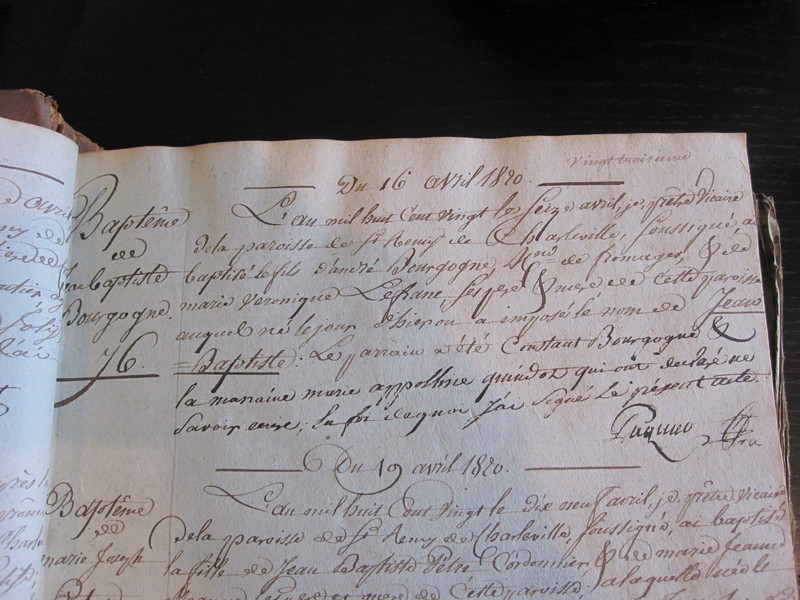 Vingt troisieme
Du 16 avril 1820.
Baptême
de
Jean baptiste
Bourgogne.
76.
L'an mil huit Cent vingt le Seize avril, je, prêtre Vicaire
dela paroisse de St Remy de Charleville, soussigné, ai
baptisé le fils d'andré Bourgogne, de fromages, & de
marie Veronique Lefranc ses pere & mere de Cette paroisse
auquel né le jour d'hier on a imposé le nom de Jean
=Baptiste: Le parrain a été Constant Bourgogne &
la marraine marie appolline qui ont declaré ne
Savoir ecrire; En foi de quoi J'ai Signé Le présent acte.
Du 19 avril 1820.
Baptême
de
marie Joseph
L'an mil huit Cent vingt le dix neuf avril, je, prêtre Vicaire
dela paroisse de St Remy de Charleville, soussigné, ai baptisé
la fille de Jean Baptiste Cordonnier & de marie Jeanne
ses pere et mere de Cette paroisse; a laquelle née le